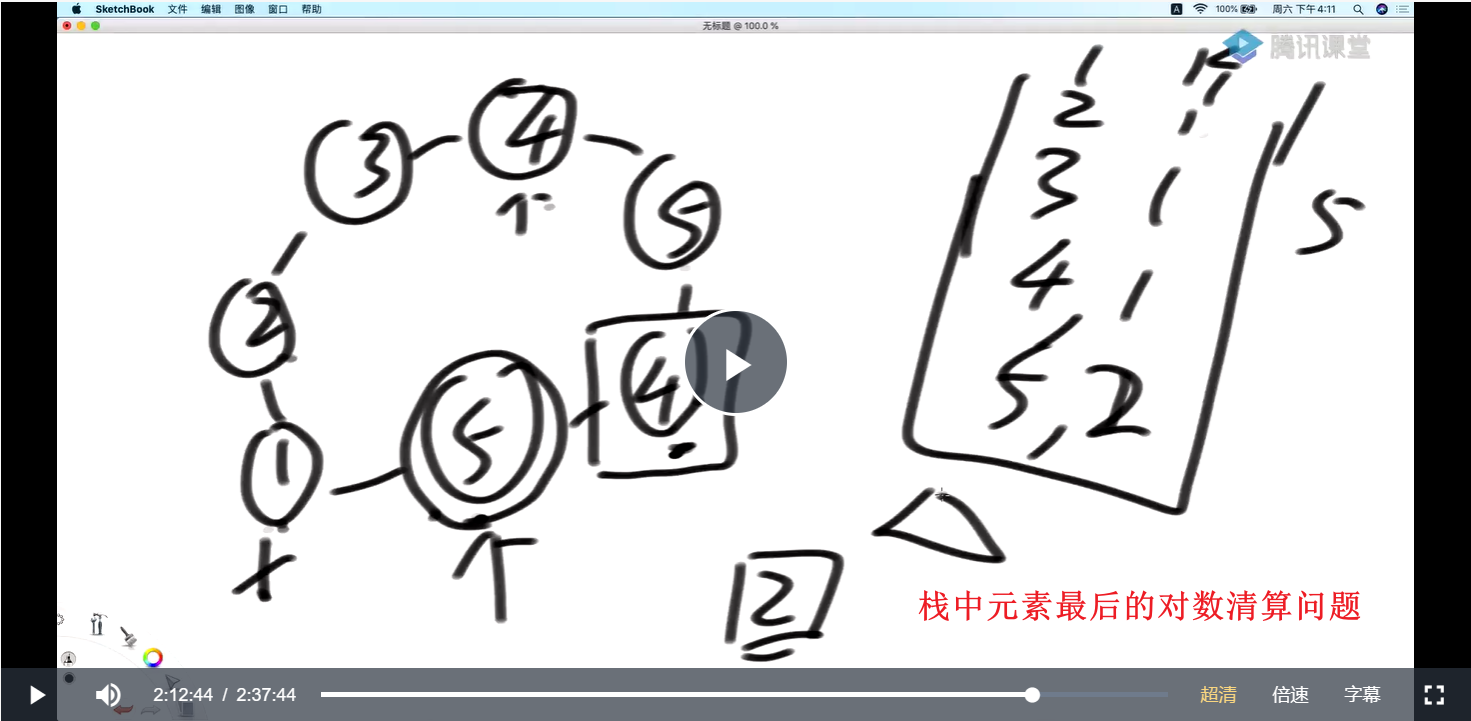 SketchBook 文件 编辑 图像 窗口 帮助
A 100% 周六 下午4:11
无标题 @ 100.0 %
腾讯课堂
3 4 5
2 4
1 5
1
2
3 1
4 1
5, 2
5
2
栈中元素最后的对数清算问题
2:12:44 / 2:37:44 超清 倍速 字幕